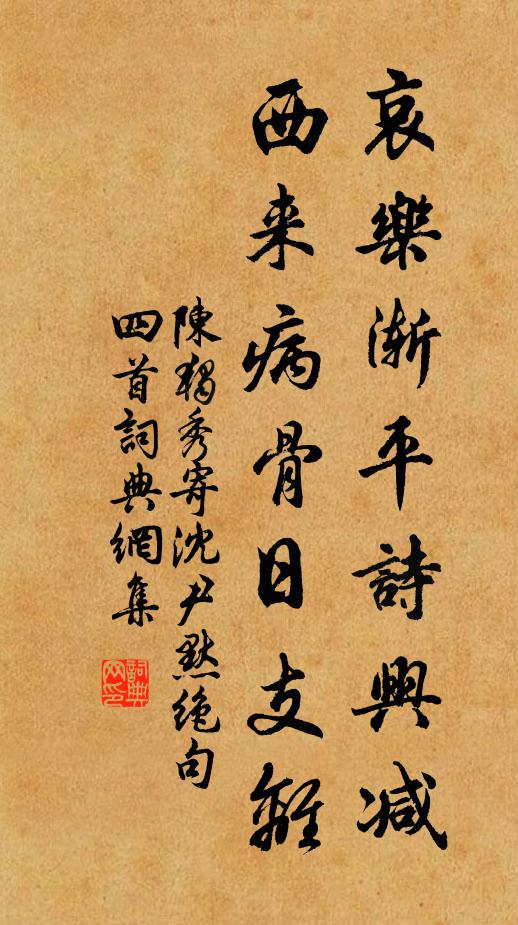 哀樂漸平詩興减
西来病骨日支離
陳獨秀寄沈尹默绝句
四首詞典網集
詞典
网印